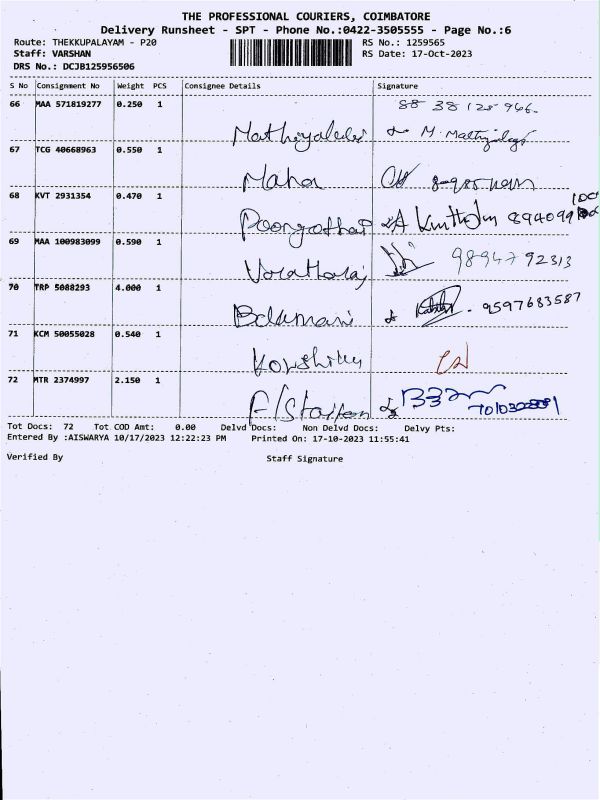 THE PROFESSIONAL COURIERS, COIMBATORE
Delivery Runsheet - SPT - Phone No.:0422-3505555 - Page No.:6
Route: THEKKUPALAYAM - P20 RS No.: 1259565
Staff: VARSHAN RS Date: 17-Oct-2023
DRS No.: DCJB125956506
S No Consignment No Weight PCS Consignee Details Signature
66 MAA 571819277 0.250 1
67 TCG 40668963 0.550 1
Maha
68 KVT 2931354 0.470 1
69 MAA 100983099 0.590 1
98947 92313
70 TRP 5088293 4.000 1
Balamani 9597683587
71 KCM 50055028 0.540 1
72 MTR 2374997 2.150 1
Tot Docs: 72 Tot COD Amt: 0.00 Delvd Docs: Non Delvd Docs: Delvy Pts:
Entered By :AISWARYA 10/17/2023 12:22:23 PM Printed On: 17-10-2023 11:55:41
Verified By Staff Signature